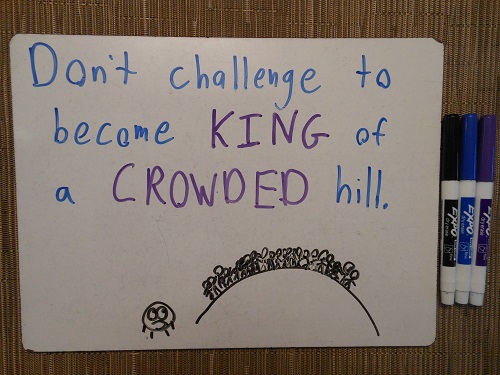 Don't challenge to
become KING of
a CROWDED hill.
EXPO
EXPO
EXPO